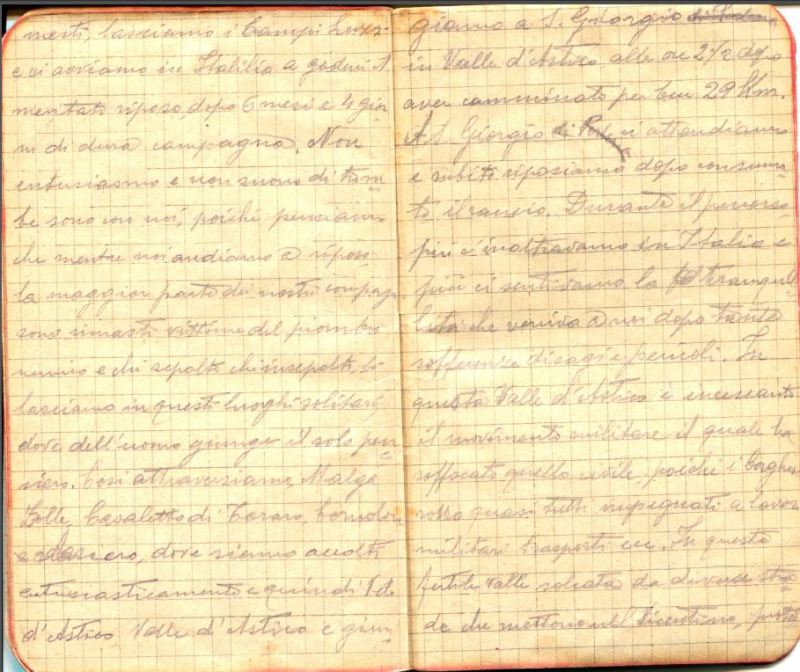 menti, lasciamo i Campi Luzz-
e ci avviamo in Italia a goderci il
meritato riposo, dopo 6 mesi e 4 gior
ni di dura campagna. Non
entusiasmo e non suono di trom
be sono con noi, poichè pensiam
che mentre noi andiamo a riposo
la maggior parte dei nostri compagn
sono rimasti vittime del piombo
nemico e chi sepolti chi insepolti, li
lasciamo in questi luoghi solitari
dove dell'uomo giunge il solo pen
siero. Così attraversiamo, Malga
Zolle, Casaletto di Cararo, Comolon
e, dove siamo accolti
entusiasticamente e quindi
d'Astico Valle d'Astico e giun
giamo a S. Giorgio
in Valle d'Astico alle ore 2 1/2 dopo
aver camminato per ben 29 Km.
A S. Giorgio ci attendiamo
e subito riposiamo dopo consuma
to il rancio. Durante il percorso
più c'inoltravamo in Italia e
più ci sentivamo la tranquil
lità che veniva a noi dopo tante
sofferenze disagi e pericoli. In
questa Valle d'Astico è incessante
il movimento militare il quale ha
soffocato quello civile, poichè i borghesi
sono quasi tutti impegnati a lavori
militari trasporti ecc. In questa
fertile valle solcata da diverse stra
de che mettono nel Vicentino, porta